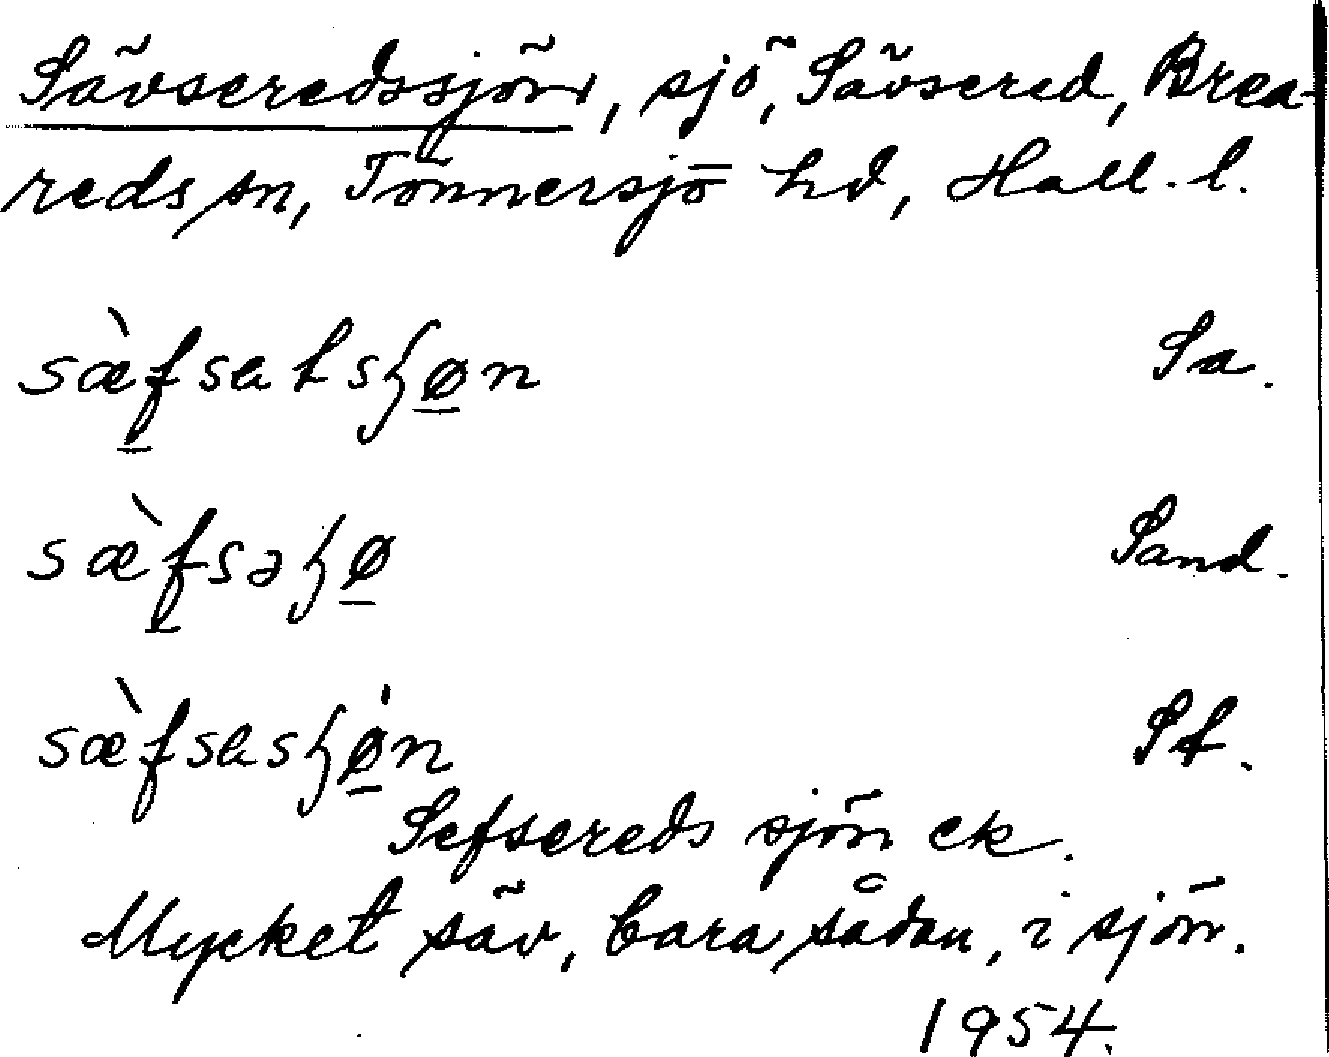 Sävseredssjön, sjö, Sävsered, Brea-
reds sn, Tönnersjö hd, Hall. l.
sæ̀fsatsɧøn Sa.
sæ̀fsəɧø Sand.
sæ̀fsasɧøn St.
Sefsereds sjön ek.
Mycket säv, bara sådan, i sjön.
1954.